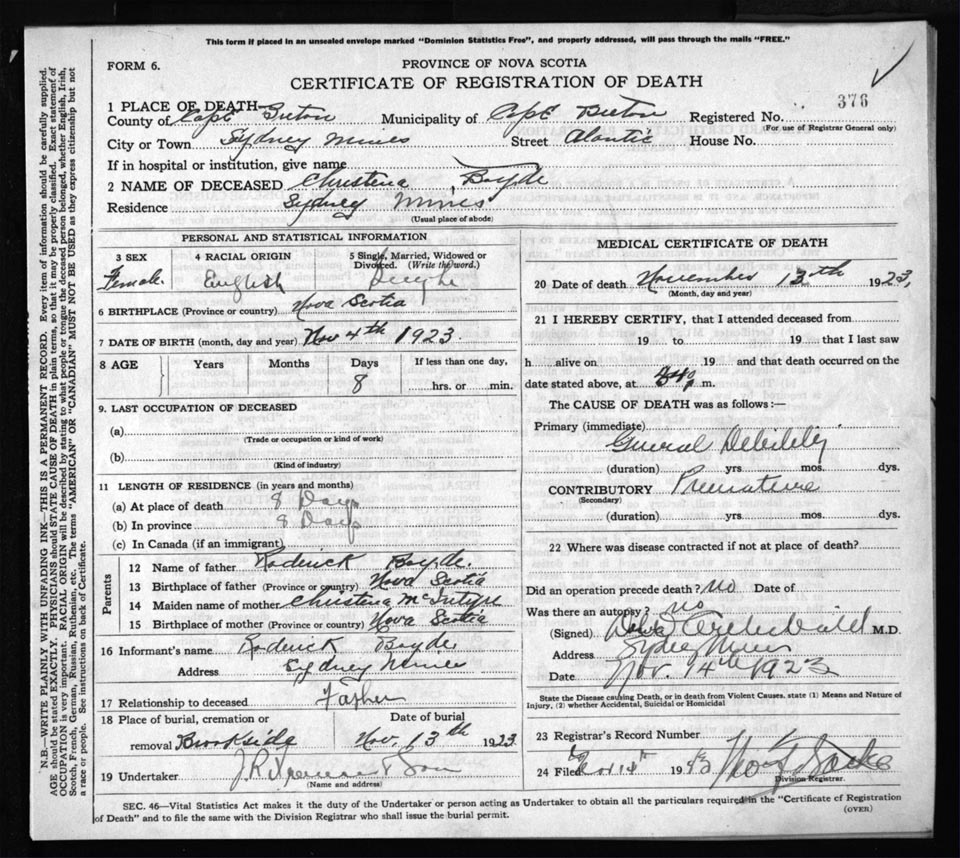 This form if placed in an unsealed envelope marked "Dominion Statistics Free", and properly addressed, will pass through the mails "FREE."
FORM 6.
PROVINCE OF NOVA SCOTIA
CERTIFICATE OF REGISTRATION OF DEATH
376
1 PLACE OF DEATH—
County of Cape Breton Municipality of Cape Breton Registered No.
(For use of Registrar General only)
City or Town Sydney Mines Street Alantic House No.
If in hospital or institution, give name
2 NAME OF DECEASED Christena Boyde
Residence Sydney Mines
(Usual place of abode)
PERSONAL AND STATISTICAL INFORMATION
3 SEX 4 RACIAL ORIGIN 5 Single, Married, Widowed or Divorced. (Write the word.)
Female. English Single
6 BIRTHPLACE (Province or country) Nova Scotia
7 DATE OF BIRTH (month, day and year) Nov 4th 1923
8 AGE Years Months Days If less than one day,
8 hrs. or min.
9. LAST OCCUPATION OF DECEASED
(a)
(Trade or occupation or kind of work)
(b)
(Kind of industry)
11 LENGTH OF RESIDENCE (in years and months)
(a) At place of death 8 Days
(b) In province 8 Days
(c) In Canada (if an immigrant)
Parents
12 Name of father Roderick Boyde.
13 Birthplace of father (Province or country) Nova Scotia
14 Maiden name of mother Christena McIntyre
15 Birthplace of mother (Province or country) Nova Scotia
16 Informant's name Roderick Boyde
Address Sydney Mines
17 Relationship to deceased Father
18 Place of burial, cremation or Date of burial
removal Brookside Nov. 13th 1923
19 Undertaker J. R. & Son
(Name and address)
MEDICAL CERTIFICATE OF DEATH
20 Date of death November 12th 1923,
(Month, day and year)
21 I HEREBY CERTIFY, that I attended deceased from
19 to 19 that I last saw
h alive on 19 and that death occurred on the
date stated above, at m.
The CAUSE OF DEATH was as follows:—
Primary (immediate)
General Debility
(duration) yrs mos. dys.
CONTRIBUTORY Premature
(Secondary)
(duration) yrs. mos. dys.
22 Where was disease contracted if not at place of death?
Did an operation precede death? No Date of
Was there an autopsy? No
(Signed) Archibald M.D.
Address Sydney Mines
Date Nov. 14th 1923
State the Disease causing Death, or in death from Violent Causes, state (1) Means and Nature of Injury, (2) whether Accidental, Suicidal or Homicidal
23 Registrar's Record Number
24 Filed Nov 14th 1923
Division Registrar.
SEC. 46—Vital Statistics Act makes it the duty of the Undertaker or person acting as Undertaker to obtain all the particulars required in the "Certificate of Registration
of Death" and to file the same with the Division Registrar who shall issue the burial permit.
(OVER)
N.B.—WRITE PLAINLY WITH UNFADING INK—THIS IS A PERMANENT RECORD. Every item of information should be carefully supplied.
AGE should be stated EXACTLY. PHYSICIANS should STATE CAUSE OF DEATH in plain terms, so that it may be properly classified. Exact statement of
OCCUPATION is very important. RACIAL ORIGIN will be described by stating to what people or tongue the deceased person belonged, whether English, Irish,
Scotch, French, German, Russian, Ruthenian, etc. The terms "AMERICAN" OR "CANADIAN" MUST NOT BE USED as they express citizenship but not
a race or people. See instructions on back of Certificate.